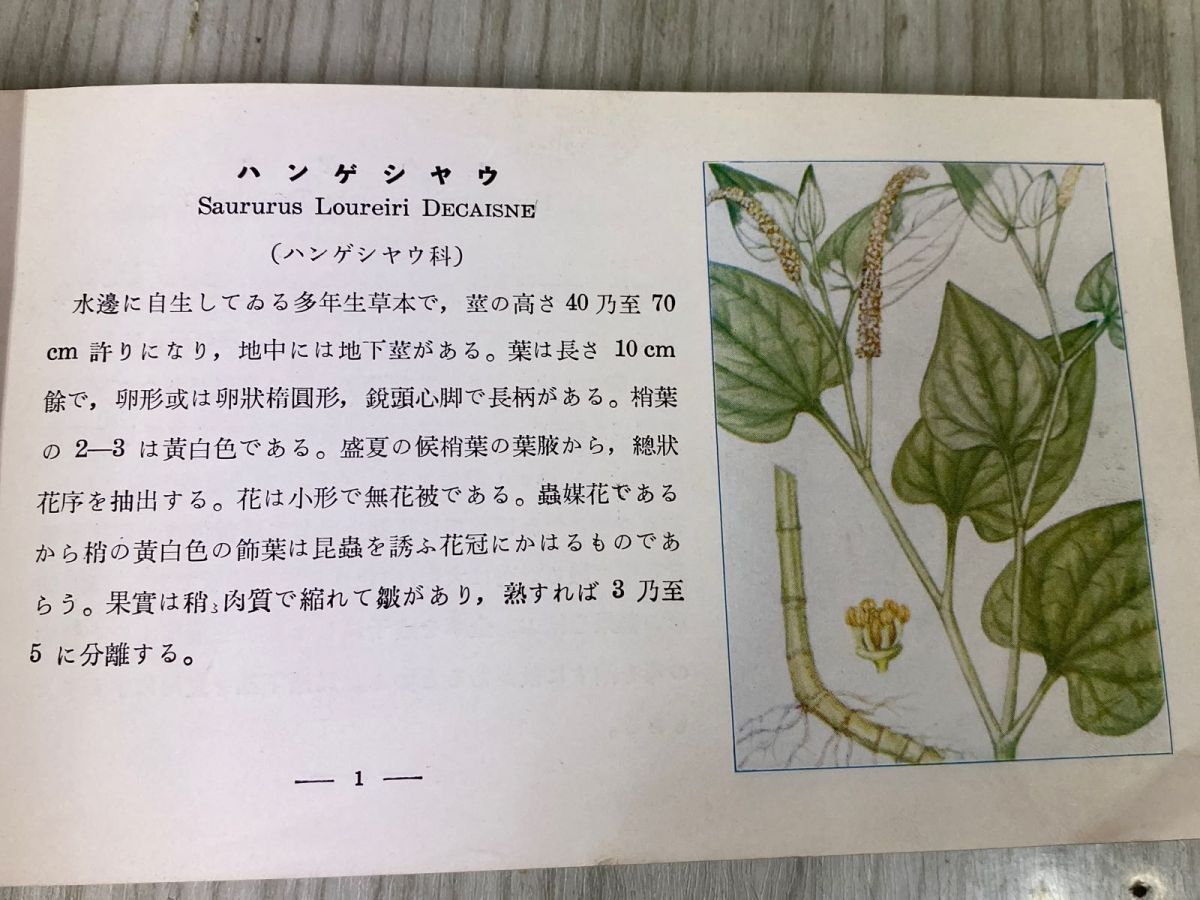 ハンゲシヤウ
Saururus Loureiri DECAISNE
(ハンゲシヤウ科)
水邊に自生してゐる多年生草本で，莖の高さ 40 乃至 70
cm 許りになり，地中には地下莖がある。葉は長さ 10 cm
餘で，卵形或は卵狀楕圓形，銳頭心脚で長柄がある。梢葉
の 2—3 は黃白色である。盛夏の候梢葉の葉腋から，總狀
花序を抽出する。花は小形で無花被である。蟲媒花である
から梢の黃白色の飾葉は昆蟲を誘ふ花冠にかはるものであ
らう。果實は稍〻肉質で縮れて皺があり，熟すれば 3 乃至
5 に分離する。
— 1 —